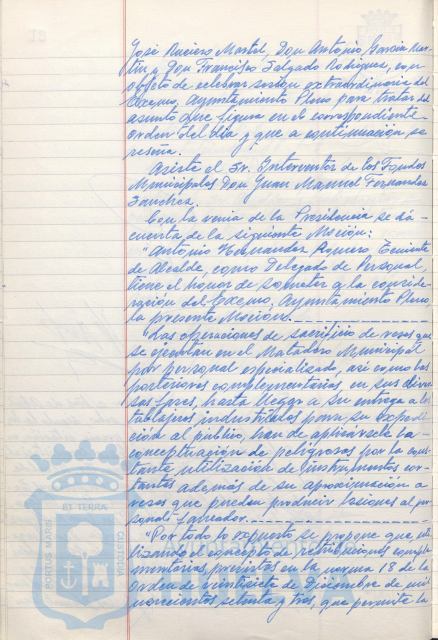 José Ruciero Martel, Don Antonio García Mar-
tín y Don Francisco Salgado Rodriguez, con
objeto de celebrar sesión extraordinaria del
Excmo. Ayuntamiento Pleno para tratar del
asunto que figura en el correspondiente
orden del dia y que a continuación se
reseña.
Asiste el Sr. Interventor de los Fondos
Municipales Don Juan Manuel Fernandez
Sanchez.
Con la venia de la Presidencia se dá
cuenta de la siguiente Moción:
"Antonio Hernandez Teniente
de Alcalde, como Delegado de Personal,
tiene el honor de someter a la conside-
ración del Excmo. Ayuntamiento Pleno,
la presente Moción.
"Las operaciones de sacrificio de reses que
se ejecutan en el Matadero Municipal
por personal especializado, así como las
posteriores complementarias en sus diver-
sas fases, hasta llegar a su entrega a los
tablajeros industriales para su expedi-
ción al público, han de aplicársele la
conceptuación de peligrosas por la cons-
tante utilización de instrumentos cor-
tantes además de su aproximación a
reses que pueden producir lesiones al per-
sonal
"Por todo lo expuesto se propone que uti-
lizando el concepto de retribuciones comple-
mentarias previstas en la norma 18 de la
Orden de veintisiete de Diciembre de mil
novecientos setenta y tres, que permite la
PORTUS MARIS
ET TERRÆ
CUSTODIA